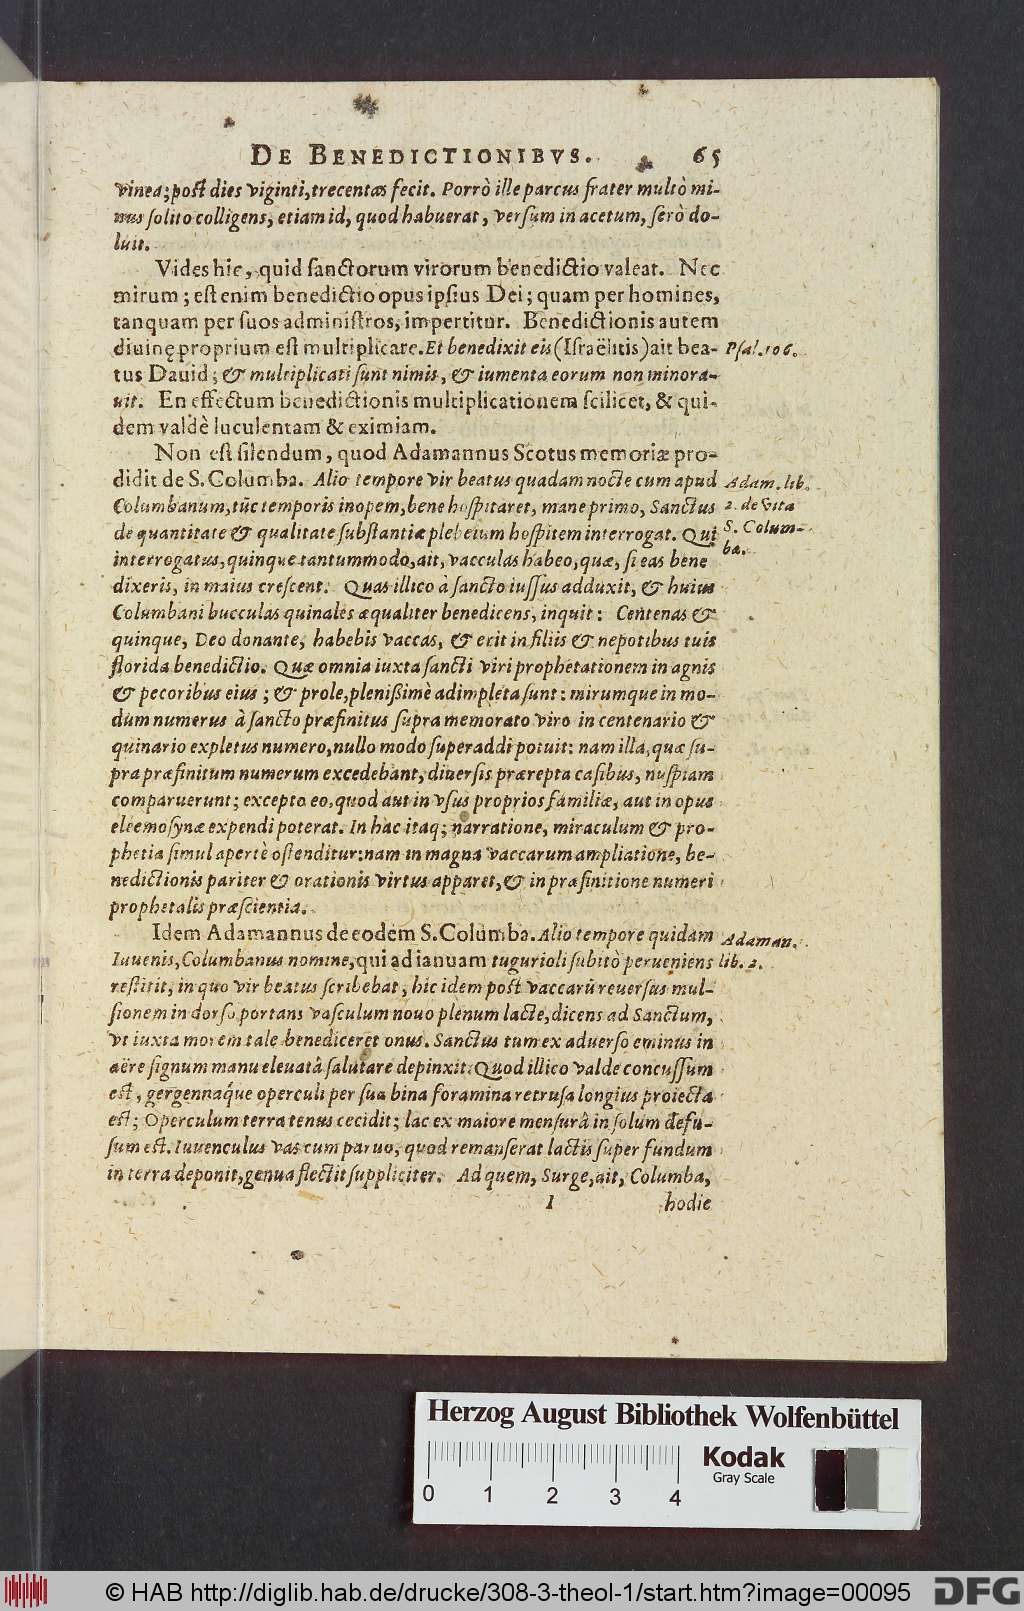 DE BENEDICTIONIBVS. 65
vinea; post dies viginti, trecentas fecit. Porrò ille parcus frater multò mi-
nus solito colligens, etiam id, quod habuerat, versum in acetum, serò do-
luit.
Vides hic, quid sanctorum virorum benedictio valeat. Nec
mirum; est enim benedictio opus ipsius Dei; quam per homines,
tanquam per suos administros, impertitur. Benedictionis autem
diuinę proprium est multiplicare. Et benedixit eis (Israëlitis) ait bea- Psal. 106.
tus Dauid; & multiplicati sunt nimis, & iumenta eorum non minora-
uit. En effectum benedictionis multiplicationem scilicet, & qui-
dem valdè luculentam & eximiam.
Non est silendum, quod Adamannus Scotus memoriæ pro-
didit de S. Columba. Alio tempore vir beatus quadam nocte cum apud Adam. lib.
Columbanum, tũc temporis inopem, bene hospitaret, mane primo, Sanctus 2. de vita
de quantitate & qualitate substantiæ plebeium hospitem interrogat. Qui S. Colum-
interrogatus, quinque tantummodo, ait, vacculas habeo, quæ, si eas bene ba.
dixeris, in maius crescent. Quas illico à sancto iussus adduxit, & huius
Columbani bucculas quinales æqualiter benedicens, inquit: Centenas &
quinque, Deo donante, habebis vaccas, & erit in filiis & nepotibus tuis
florida benedictio. Quæ omnia iuxta sancti viri prophetationem in agnis
& pecoribus eius; & prole, plenißimè adimpleta sunt: mirumque in mo-
dum numerus à sancto præfinitus supra memorato viro in centenario &
quinario expletus numero, nullo modo superaddi potuit: nam illa, quæ su-
pra præfinitum numerum excedebant, diuersis prærepta casibus, nuspiam
comparuerunt; excepto eo, quod aut in vsus proprios familiæ, aut in opus
eleemosynæ expendi poterat. In hac itaq; narratione, miraculum & pro-
phetia simul apertè ostenditur: nam in magna vaccarum ampliatione, be-
nedictionis pariter & orationis virtus apparet, & in præfinitione numeri
prophetalis præscientia.
Idem Adamannus de eodem S. Columba. Alio tempore quidam Adaman.
Iuuenis, Columbanus nomine, qui ad ianuam tugurioli subitò perueniens lib. 2.
restitit, in quo vir beatus scribebat, hic idem post vaccarũ reuersus mul-
sionem in dorso portans vasculum nouo plenum lacte, dicens ad Sanctum,
vt iuxta morem tale benediceret onus. Sanctus tum ex aduerso eminus in
aëre signum manu eleuatâ salutare depinxit. Quod illico valde concussum
est, gergennaq́ue operculi per sua bina foramina retrusa longius proiecta
est; Operculum terra tenus cecidit; lac ex maiore mensurâ in solum defu-
sum est. Iuuenculus vas cum paruo, quod remanserat lactis super fundum
in terra deponit, genua flectit suppliciter. Ad quem, Surge, ait, Columba,
I hodie
Herzog August Bibliothek Wolfenbüttel
Kodak
Gray Scale
0 1 2 3 4
© HAB http://diglib.hab.de/drucke/308-3-theol-1/start.htm?image=00095
DFG